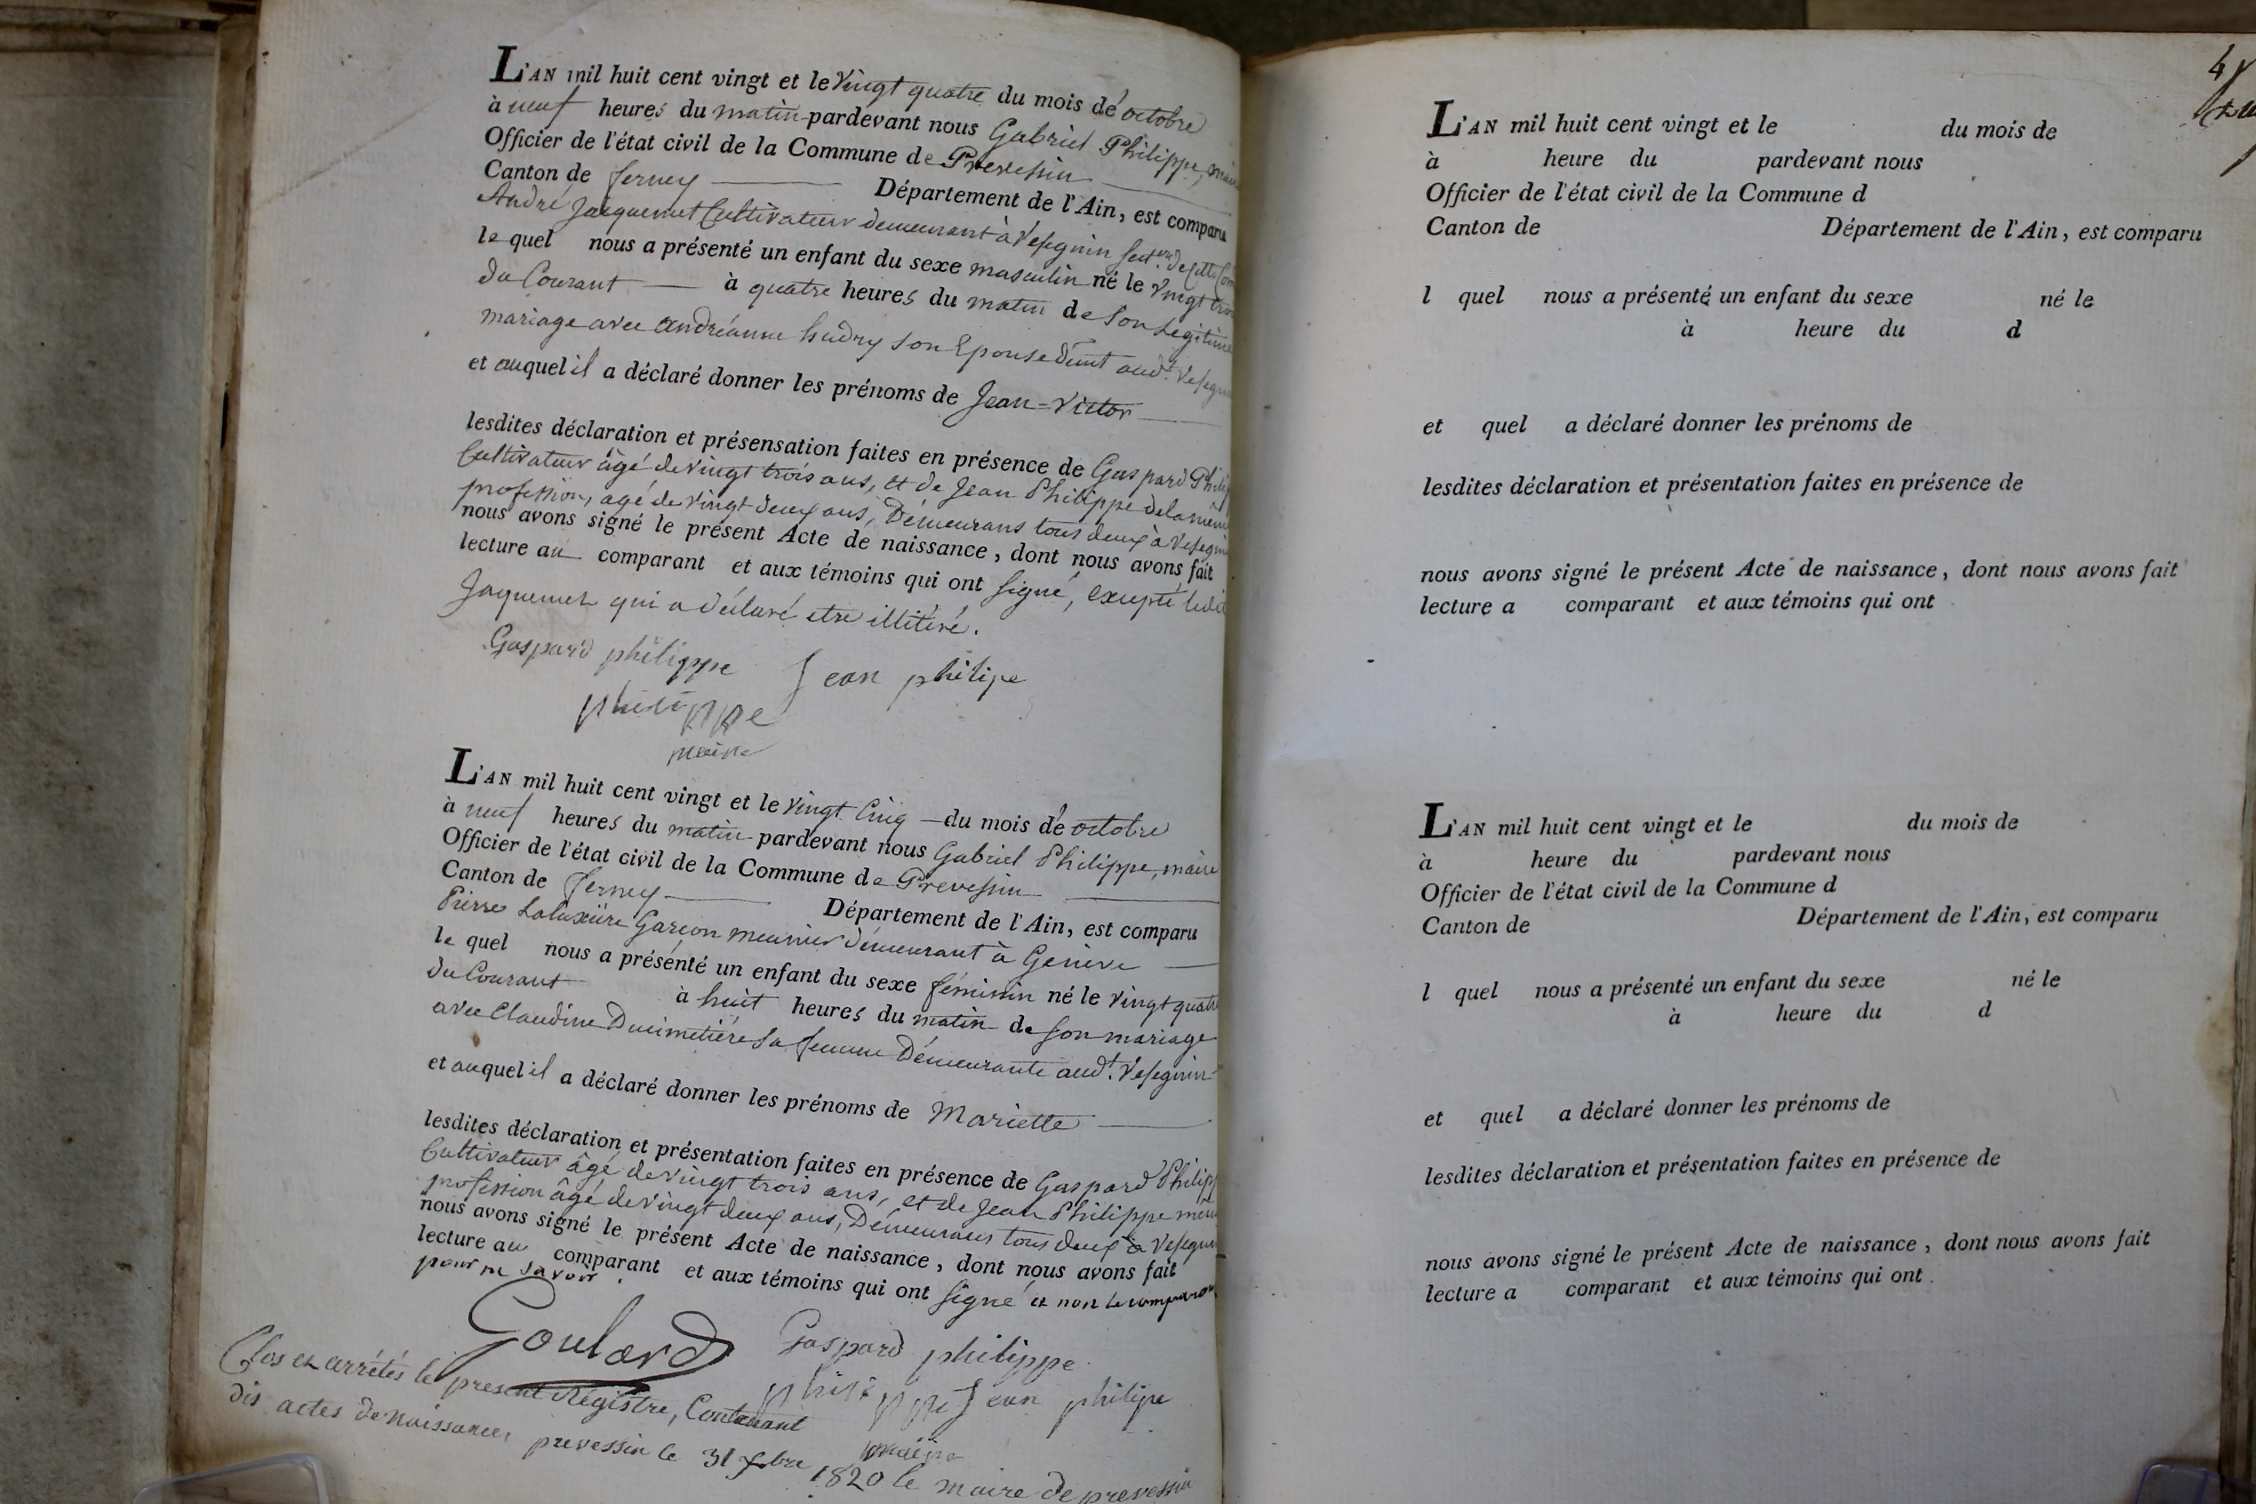 L'AN mil huit cent vingt et le Vingt quatre du mois de octobre
à neuf heures du matin pardevant nous Gabriel Philippe, maire
Officier de l'état civil de la Commune de Prevessin
Canton de ferney Département de l'Ain, est comparu
André Jacquemet Cultivateur demeurant à Vesegnin
le quel nous a présenté un enfant du sexe masculin né le Vingt trois
du Courant à quatre heures du matin de son Légitime
mariage avec andréanne hudry son Epouse audt. Vesegnin
et auquel il a déclaré donner les prénoms de Jean-Victor
lesdites déclaration et présensation faites en présence de Gaspard Philippe
Cultivateur âgé de Vingt trois ans, et de Jean Philippe de la même
profession, agé de Vingt deux ans, Démeurans tous deux à Vesegnin
nous avons signé le présent Acte de naissance, dont nous avons fait
lecture au comparant et aux témoins qui ont signé, excepté ledit
Jaquemet qui a déclaré etre illitéré.
Gaspard philippe Jean philipe
philippe
maire
L'AN mil huit cent vingt et le Vingt Cinq du mois de octobre
à neuf heures du matin pardevant nous Gabriel Philippe, maire
Officier de l'état civil de la Commune de Prevessin
Canton de ferney Département de l'Ain, est comparu
Pierre Garcon meunier démeurant à Genève
le quel nous a présenté un enfant du sexe féminin né le Vingt quatre
du Courant à huit heures du matin de son mariage
avec Claudine Ducimetiére sa femme Démeurante audt. Vesegnin
et auquel il a déclaré donner les prénoms de Mariette
lesdites déclaration et présentation faites en présence de Gaspard Philippe
Cultivateur âgé de Vingt trois ans, et de Jean Philippe même
profession âgé de Vingt deux ans, Démeurans tous deux à Vesegnin
nous avons signé le présent Acte de naissance, dont nous avons fait
lecture au comparant et aux témoins qui ont signé et non le comparant
pour ne savoir.
Goulard Gaspard philippe
philippe Jean philipe
maire
Clos et arrétés le present Régistre, Contenant
dix actes de naissances prevessin le 31 Xbre 1820 le maire de prevessin
4
L'AN mil huit cent vingt et le du mois de
à heure du pardevant nous
Officier de l'état civil de la Commune d
Canton de Département de l'Ain, est comparu
l quel nous a présenté un enfant du sexe né le
à heure du d
et quel a déclaré donner les prénoms de
lesdites déclaration et présentation faites en présence de
nous avons signé le présent Acte de naissance, dont nous avons fait
lecture a comparant et aux témoins qui ont
L'AN mil huit cent vingt et le du mois de
à heure du pardevant nous
Officier de l'état civil de la Commune d
Canton de Département de l'Ain, est comparu
l quel nous a présenté un enfant du sexe né le
à heure du d
et quel a déclaré donner les prénoms de
lesdites déclaration et présentation faites en présence de
nous avons signé le présent Acte de naissance, dont nous avons fait
lecture a comparant et aux témoins qui ont